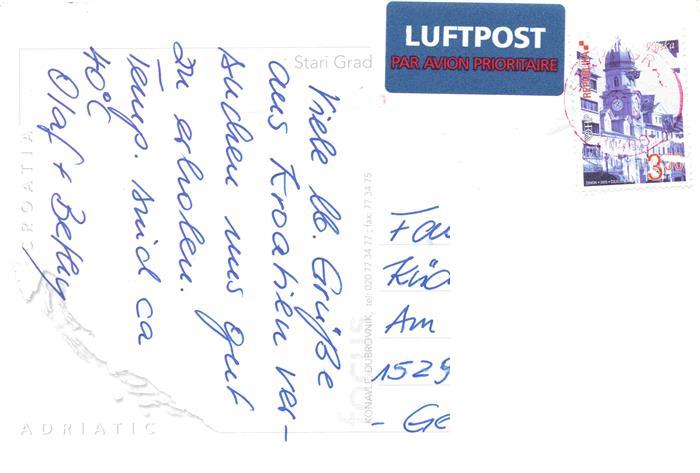 LUFTPOST
PAR AVION PRIORITAIRE
Rijeka
REPUBLIKA
3,50
Stari Grad
Viele lb. Grüße
aus Kroatien ver-
suchen uns gut
zu erholen.
Temp. sind ca
40°C
Olaf + Betty
CROATIA
ADRIATIC
focus
KONAVLE DUBROVNIK, tel: 020 77 34 77; fax: 77 34 75
Fa
Kü
Am
1529
- Ge